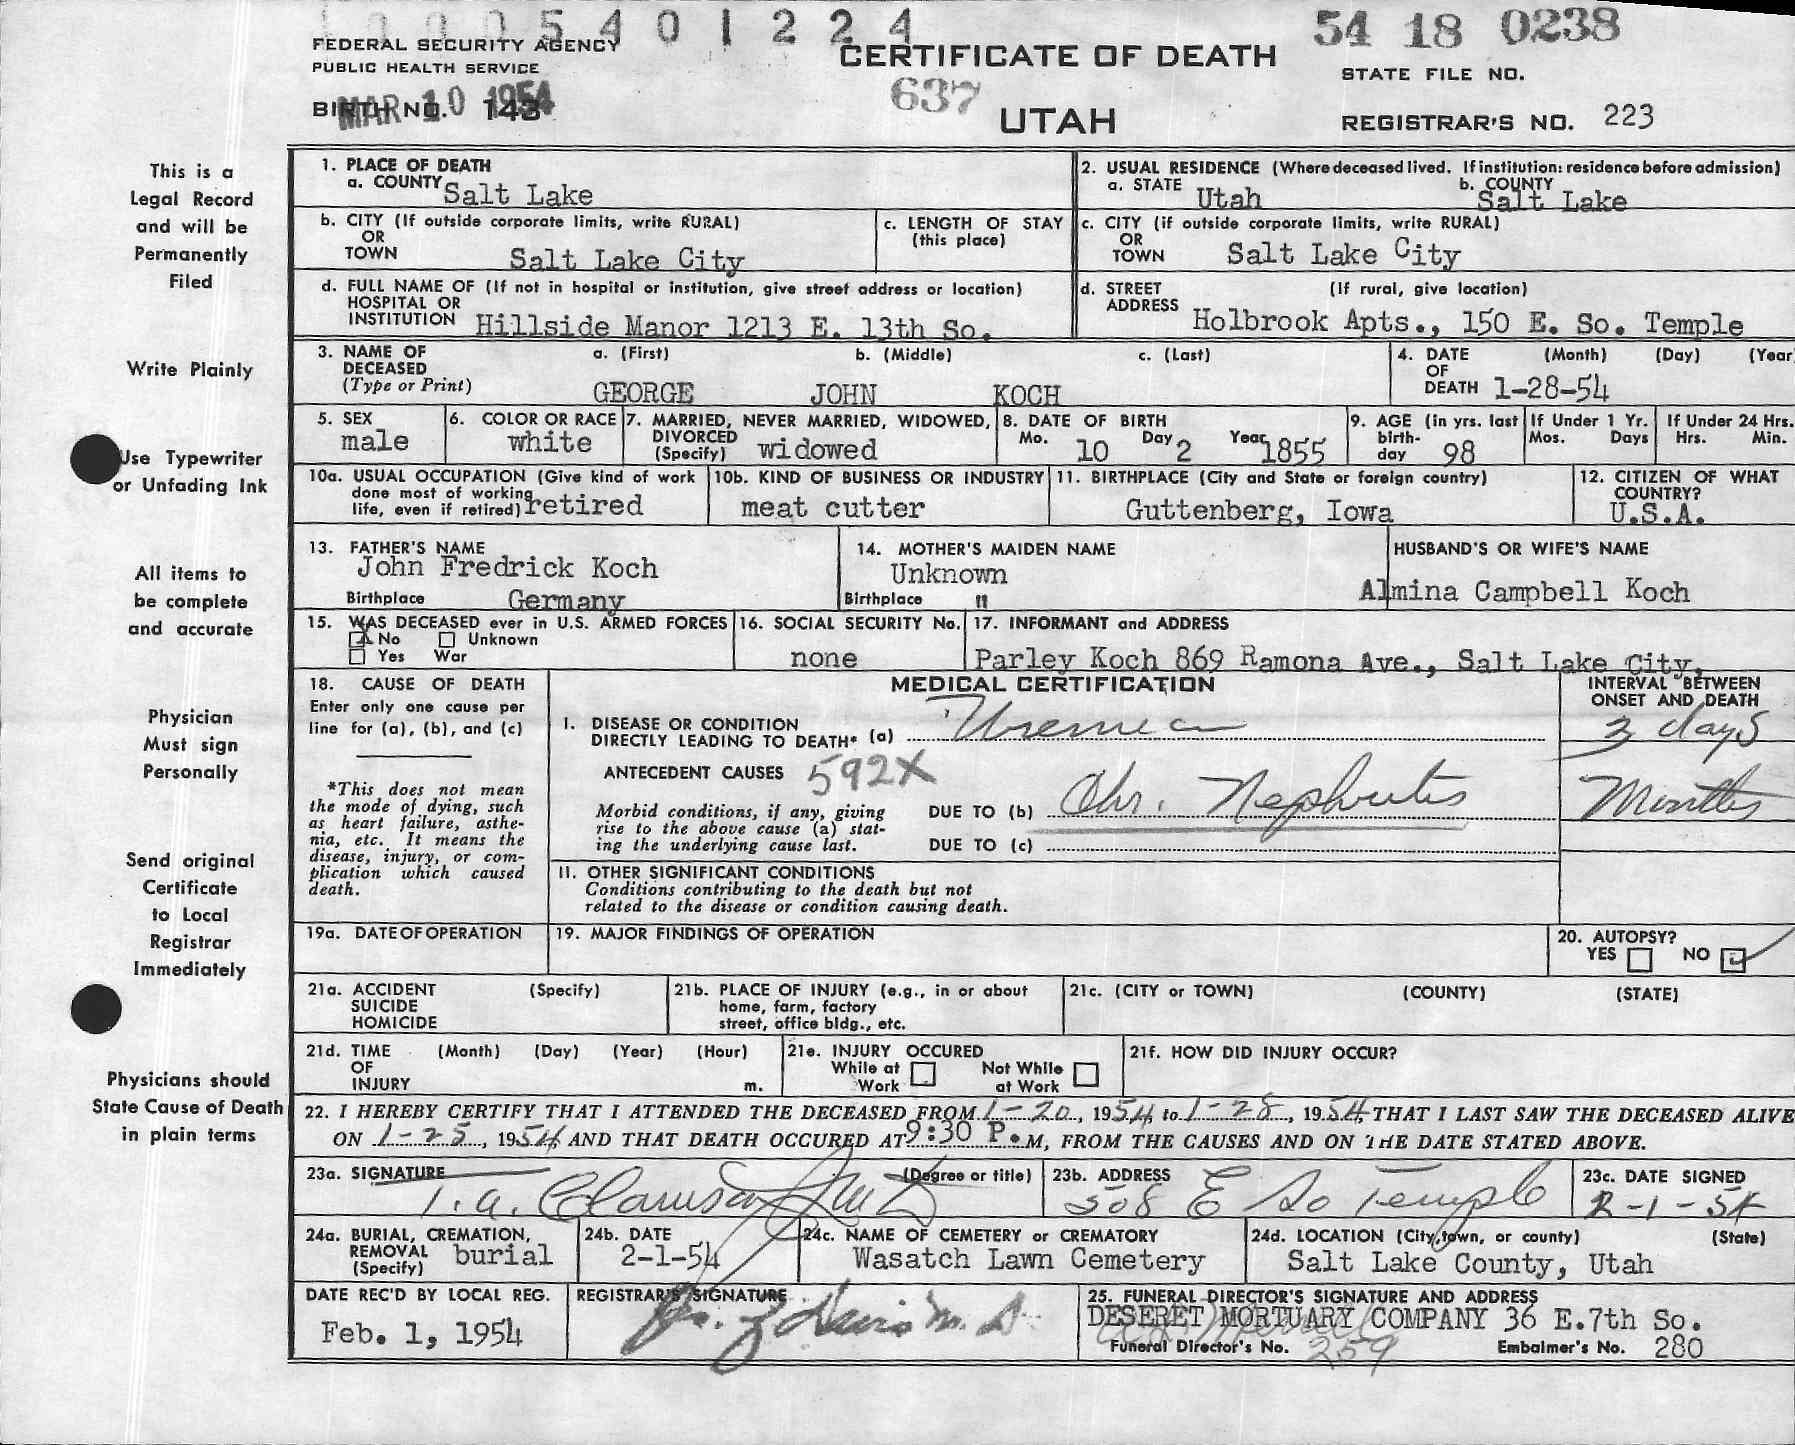 1 0 0 5 4 0 1 2 2 4
54 18 0238
FEDERAL SECURITY AGENCY
PUBLIC HEALTH SERVICE
CERTIFICATE OF DEATH
STATE FILE NO.
MAR 10 1954
BIRTH NO. 143
637
UTAH
REGISTRAR'S NO. 223
This is a
Legal Record
and will be
Permanently
Filed
Write Plainly
Use Typewriter
or Unfading Ink
All items to
be complete
and accurate
Physician
Must sign
Personally
Send original
Certificate
to Local
Registrar
Immediately
Physicians should
State Cause of Death
in plain terms
1. PLACE OF DEATH
a. COUNTY Salt Lake
2. USUAL RESIDENCE (Where deceased lived. If institution: residence before admission)
a. STATE Utah b. COUNTY Salt Lake
b. CITY (If outside corporate limits, write RURAL)
OR
TOWN Salt Lake City
c. LENGTH OF STAY
(this place)
c. CITY (if outside corporate limits, write RURAL)
OR
TOWN Salt Lake City
d. FULL NAME OF (If not in hospital or institution, give street address or location)
HOSPITAL OR
INSTITUTION Hillside Manor 1213 E. 13th So.
d. STREET (If rural, give location)
ADDRESS Holbrook Apts., 150 E. So. Temple
3. NAME OF a. (First) b. (Middle) c. (Last)
DECEASED
(Type or Print) GEORGE JOHN KOCH
4. DATE (Month) (Day) (Year
OF
DEATH 1-28-54
5. SEX
male
6. COLOR OR RACE
white
7. MARRIED, NEVER MARRIED, WIDOWED,
DIVORCED
(Specify) widowed
8. DATE OF BIRTH
Mo. 10 Day 2 Year 1855
9. AGE (in yrs. last
birth-
day 98
If Under 1 Yr.
Mos. Days
If Under 24 Hrs.
Hrs. Min.
10a. USUAL OCCUPATION (Give kind of work
done most of working
life, even if retired) retired
10b. KIND OF BUSINESS OR INDUSTRY
meat cutter
11. BIRTHPLACE (City and State or foreign country)
Guttenberg, Iowa
12. CITIZEN OF WHAT
COUNTRY?
U.S.A.
13. FATHER'S NAME
John Fredrick Koch
Birthplace Germany
14. MOTHER'S MAIDEN NAME
Unknown
Birthplace "
HUSBAND'S OR WIFE'S NAME
Almina Campbell Koch
15. WAS DECEASED ever in U.S. ARMED FORCES
X No Unknown
Yes War
16. SOCIAL SECURITY No.
none
17. INFORMANT and ADDRESS
Parley Koch 869 Ramona Ave., Salt Lake City,
18. CAUSE OF DEATH
Enter only one cause per
line for (a), (b), and (c)
*This does not mean
the mode of dying, such
as heart failure, asthe-
nia, etc. It means the
disease, injury, or com-
plication which caused
death.
MEDICAL CERTIFICATION
INTERVAL BETWEEN
ONSET AND DEATH
I. DISEASE OR CONDITION
DIRECTLY LEADING TO DEATH* (a) Uremia 3 days
ANTECEDENT CAUSES 592X
Morbid conditions, if any, giving
rise to the above cause (a) stat-
ing the underlying cause last.
DUE TO (b) Chr. Nephritis Months
DUE TO (c)
II. OTHER SIGNIFICANT CONDITIONS
Conditions contributing to the death but not
related to the disease or condition causing death.
19a. DATE OF OPERATION
19. MAJOR FINDINGS OF OPERATION
20. AUTOPSY?
YES NO
21a. ACCIDENT (Specify)
SUICIDE
HOMICIDE
21b. PLACE OF INJURY (e.g., in or about
home, farm, factory
street, office bldg., etc.
21c. (CITY or TOWN) (COUNTY) (STATE)
21d. TIME (Month) (Day) (Year) (Hour)
OF
INJURY m.
21e. INJURY OCCURED
While at Work Not While at Work
21f. HOW DID INJURY OCCUR?
22. I HEREBY CERTIFY THAT I ATTENDED THE DECEASED FROM 1-20, 1954, to 1-28, 1954, THAT I LAST SAW THE DECEASED ALIVE
ON 1-25, 1954 AND THAT DEATH OCCURED AT 9:30 P.M, FROM THE CAUSES AND ON THE DATE STATED ABOVE.
23a. SIGNATURE (Degree or title)
T. A. Clawson
23b. ADDRESS
508 E So Temple
23c. DATE SIGNED
2-1-54
24a. BURIAL, CREMATION,
REMOVAL
(Specify) burial
24b. DATE
2-1-54
24c. NAME OF CEMETERY or CREMATORY
Wasatch Lawn Cemetery
24d. LOCATION (City, town, or county) (State)
Salt Lake County, Utah
DATE REC'D BY LOCAL REG.
Feb. 1, 1954
REGISTRAR'S SIGNATURE
25. FUNERAL DIRECTOR'S SIGNATURE AND ADDRESS
DESERET MORTUARY COMPANY 36 E.7th So.
Funeral Director's No. 259 Embalmer's No. 280